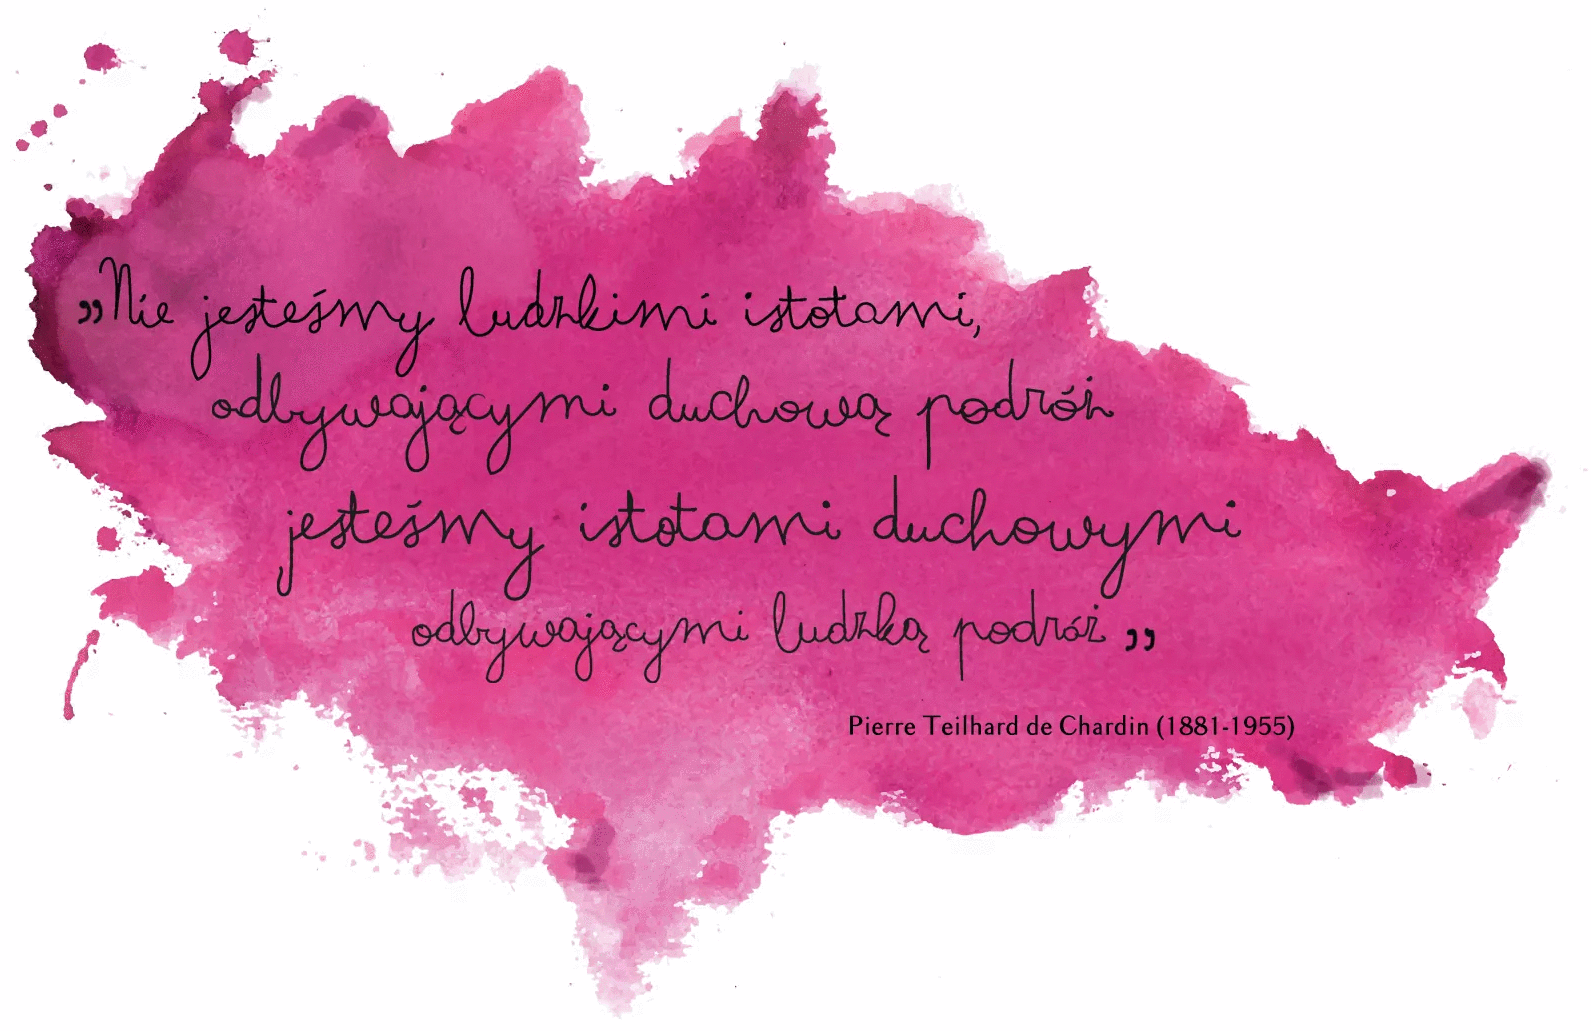 „Nie jesteśmy ludzkimi istotami,
odbywającymi duchową podróż
jesteśmy istotami duchowymi
odbywającymi ludzką podróż”
Pierre Teilhard de Chardin (1881-1955)